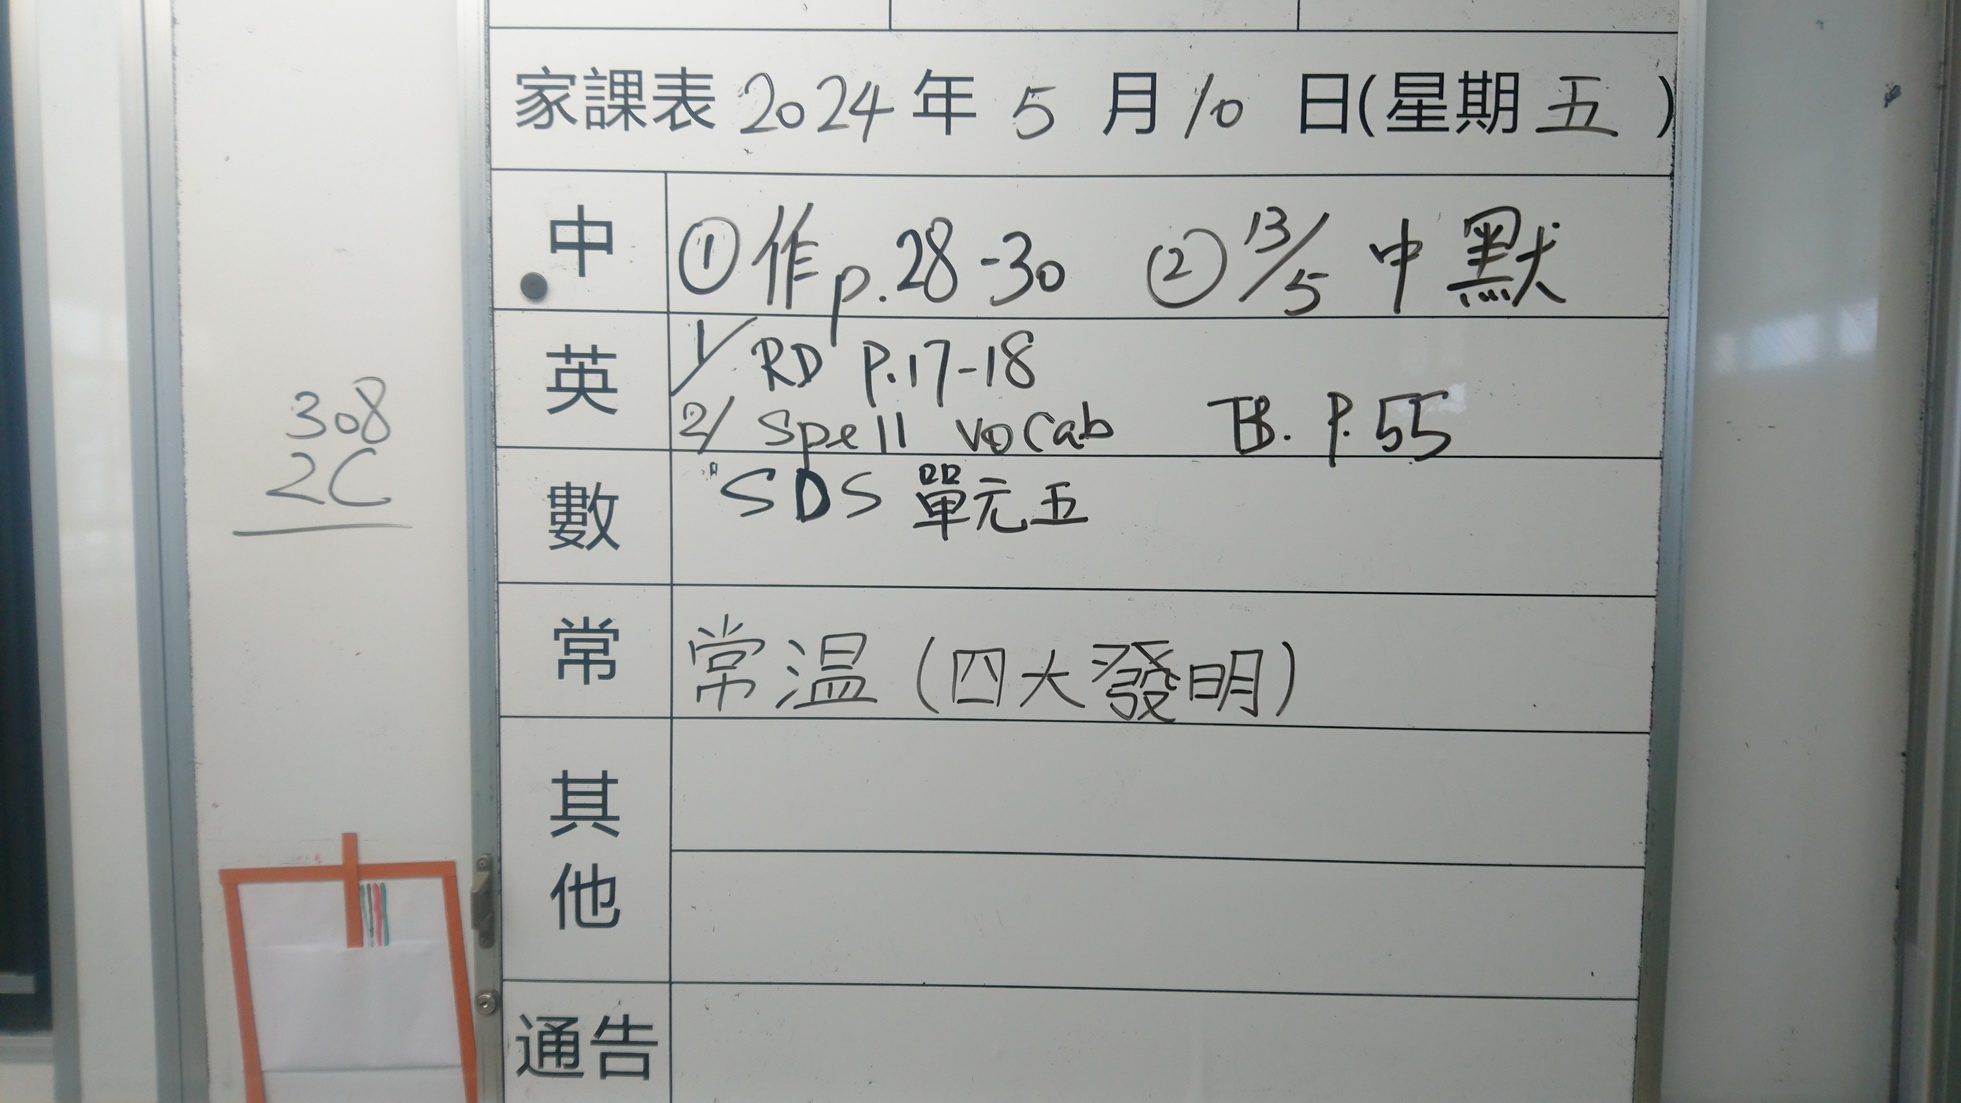 家課表 2024 年 5 月 10 日(星期 五 )
308
2C
中 ① 作 p.28-30 ② 13/5 中默
英 1/ RD P.17-18
2/ Spell vocab TB. P.55
數 SDS 單元五
常 常温 (四大發明)
其他
通告